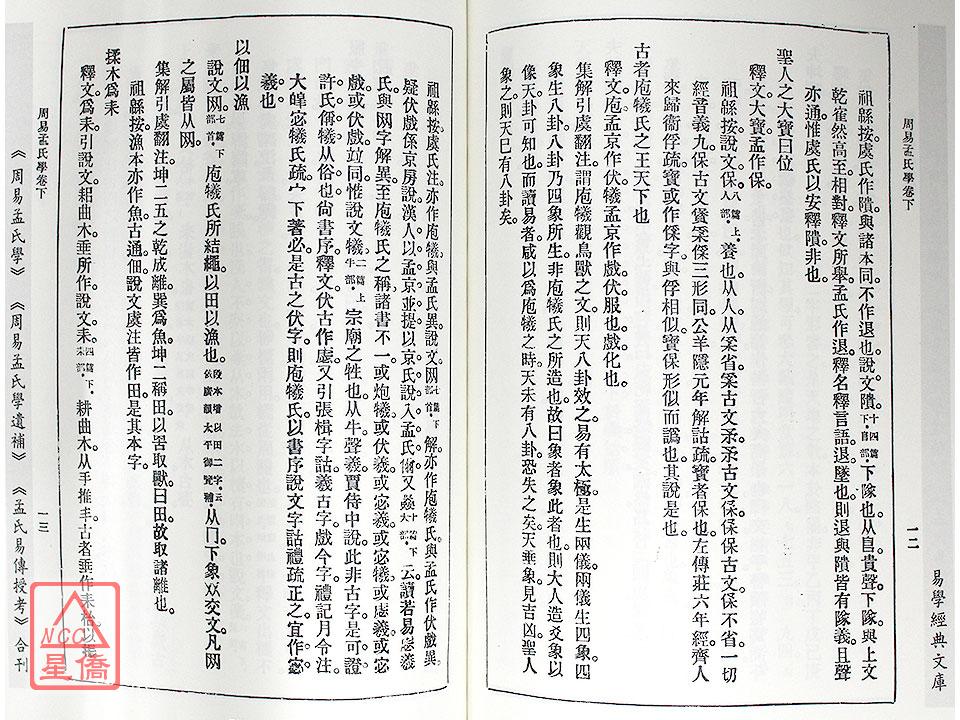 易學經典文庫
周易孟氏學卷下
一二
祖緜按虞氏作隤與諸本同不作退也說文隤十四篇下𨸏部下隊也从𨸏貴聲下隊與上文
乾隺然高至相對釋文所舉孟氏作退釋名釋言語退墜也則退與隤皆有隊義且聲
亦通惟虞氏以安釋隤非也
聖人之大寶曰位
釋文大寶孟作保
祖緜按說文保八篇上人部養也从人从𤓽省𤓽古文孚古文保不省一切
經音義九保古文三形同公羊隱元年解詁疏寶者保也左傳莊六年經齊人
來歸衞俘疏寶或作保字與俘相似寶保形似而譌也其說是也
古者庖犧氏之王天下也
釋文庖孟京作伏犧孟京作戲伏服也戲化也
集解引虞翻注謂庖犧觀鳥獸之文則天八卦效之易有太極是生兩儀兩儀生四象四
象生八卦八卦乃四象所生非庖犧氏之所造也故曰象者象此者也則大人造爻象以
像天卦可知也而讀易者咸以爲庖犧之時天未有八卦恐失之矣天垂象見吉凶聖人
象之則天已有八卦矣
祖緜按虞氏注亦作庖犧與孟氏異說文网七篇下部首解亦作庖犧氏與孟氏作伏戲異
疑伏戲係京房說漢人以孟京並提以京氏說入孟氏爾又十下大部云讀若易虙羲
氏與网字解異至庖犧氏之稱諸書不一或炮犧或伏羲或宓羲或宓犧或虙羲或宓
戲或伏戲竝同惟說文犧二篇上牛部宗廟之牲也从牛羲聲賈侍中說此非古字是可證
許氏偁犧从俗也尙書序釋文伏古作虙又引張楫字詁羲古字戲今字禮記月令注
大皞宓犧氏疏宀下著必是古之伏字則庖犧氏以書序說文字詁禮疏正之宜作宓
羲也
以佃以漁
說文网七篇下部首庖犧氏所結繩以田以漁也段本增以田二字云依廣韻太平御覽補从冂下象㸚交文凡网
之屬皆从网
集解引虞翻注坤二五之乾成離巽爲魚坤二稱田以罟取獸曰田故取諸離也
祖緜按漁本亦作魚古通佃說文虞注皆作田是其本字
揉木爲耒
釋文爲耒引說文耜曲木垂所作說文耒四篇下耒部耕曲木从手推丰古者垂作耒
周易孟氏學卷下
一三
《周易孟氏學》《周易孟氏學遺補》《孟氏易傳授考》合刊
NCC
星僑